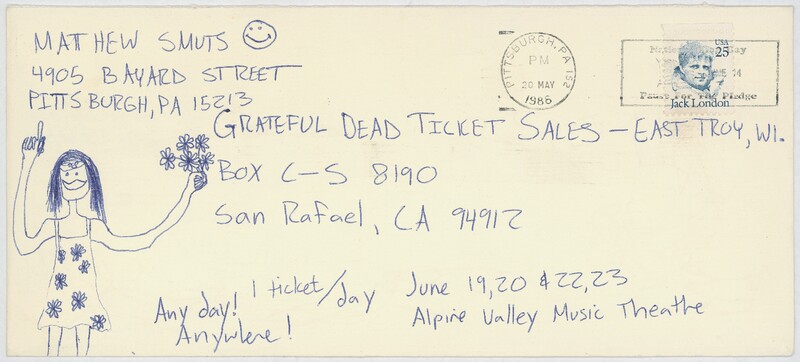 MATTHEW SMUTS
4905 BAYARD STREET
PITTSBURGH, PA 15213
PITTSBURGH, PA 152
PM
20 MAY
1986
USA
25
Pause For The Pledge
Jack London
GRATEFUL DEAD TICKET SALES – EAST TROY, WI.
BOX C–S 8190
San Rafael, CA 94912
Any day! 1 ticket/day June 19,20 & 22,23
Anywhere! Alpine Valley Music Theatre